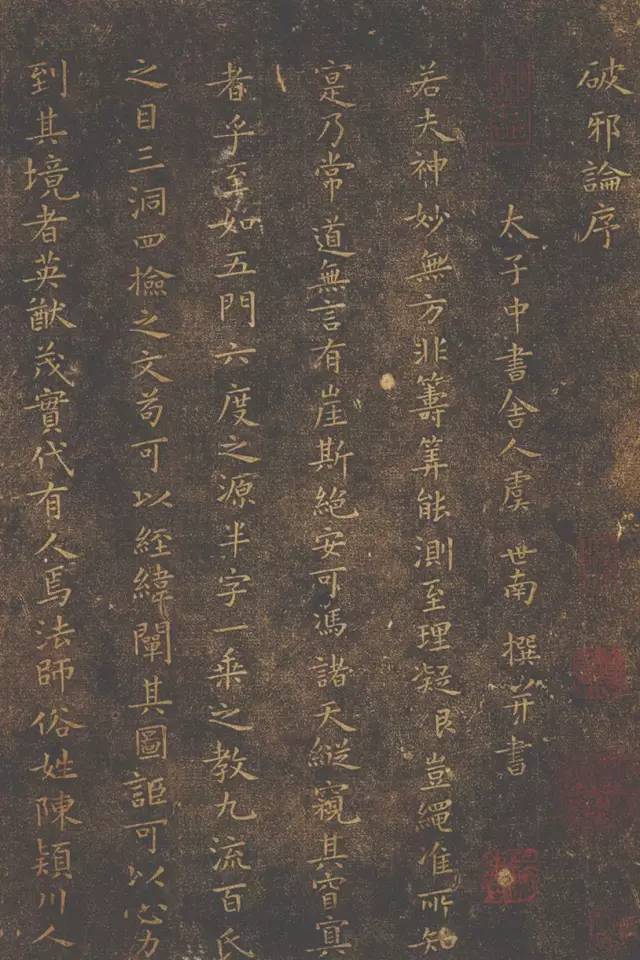 破邪論序
太子中書舍人虞世南撰并書
若夫神妙無方非籌筭能測至理凝邈豈繩准所知
寔乃常道無言有崖斯絕安可憑諸天縱窺其窅寘
者乎至如五門六度之源半字一乘之教九流百氏
之目三洞四撿之文苟可以經緯闡其圖詎可以心力
到其境者英猷茂實代有人焉法師俗姓陳潁川人